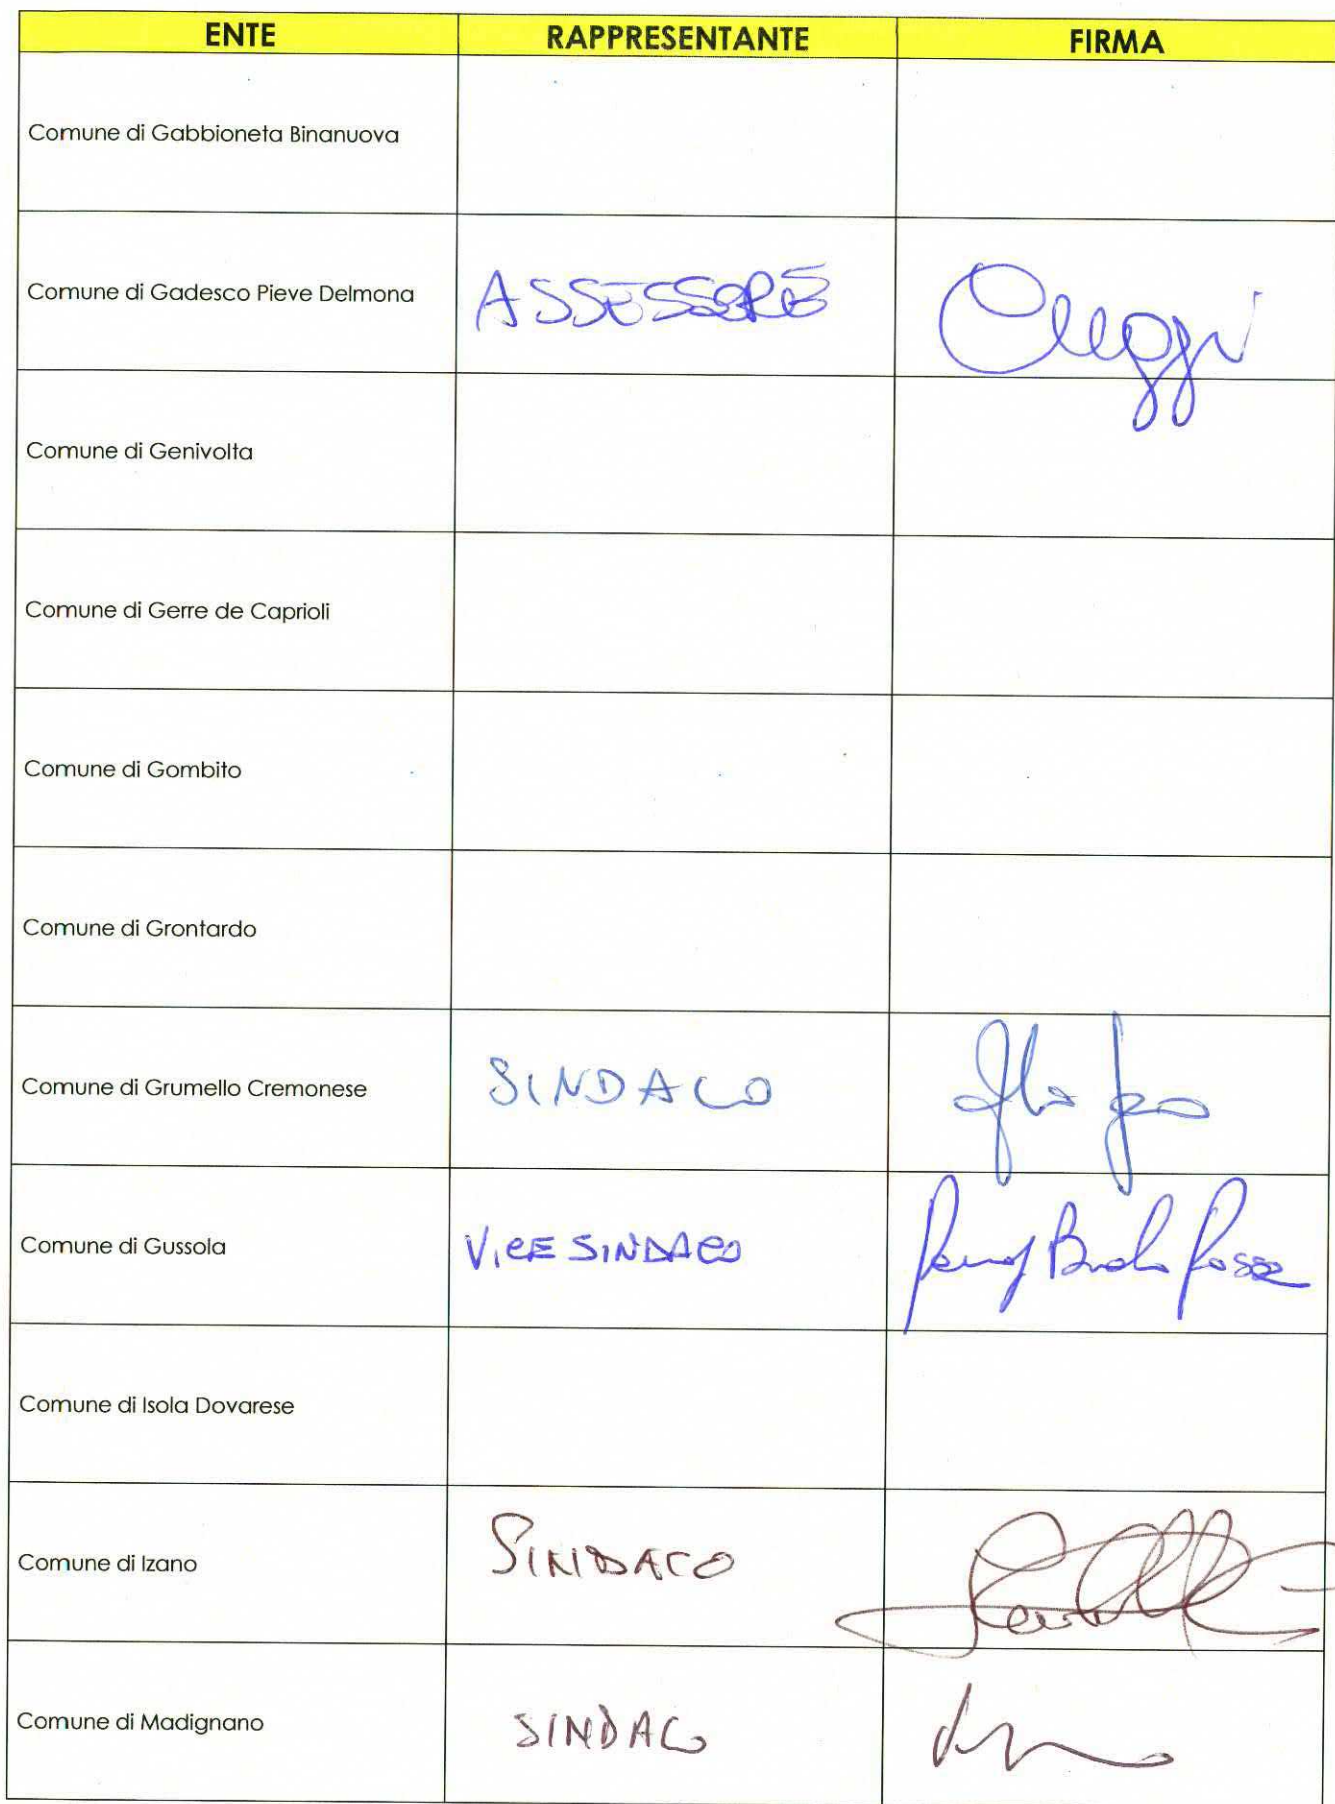 ENTE RAPPRESENTANTE FIRMA
Comune di Gabbioneta Binanuova
Comune di Gadesco Pieve Delmona ASSESSORE
Comune di Genivolta
Comune di Gerre de Caprioli
Comune di Gombito
Comune di Grontardo
Comune di Grumello Cremonese SINDACO
Comune di Gussola VICE SINDACO
Comune di Isola Dovarese
Comune di Izano SINDACO
Comune di Madignano SINDACO